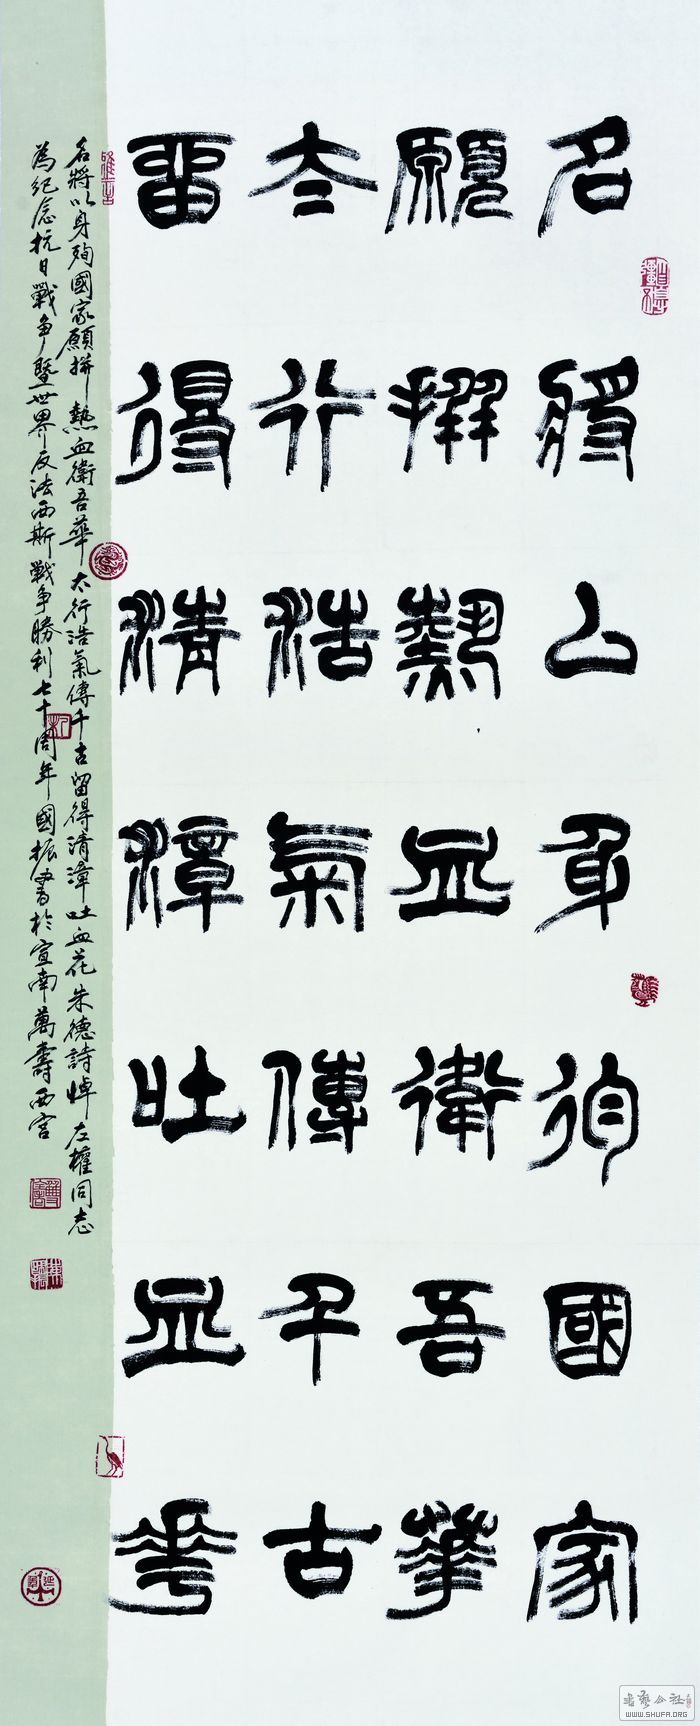 名將以身殉國家
願拼熱血衛吾華
太行浩氣傳千古
留得清漳吐血花
名將以身殉國家願拼熱血衛吾華太行浩氣傳千古留得清漳吐血花朱德詩悼左權同志
為紀念抗日戰争暨世界反法西斯戰争勝利七十周年國振書於宣南萬壽西宮
WWW.SHUFA.ORG